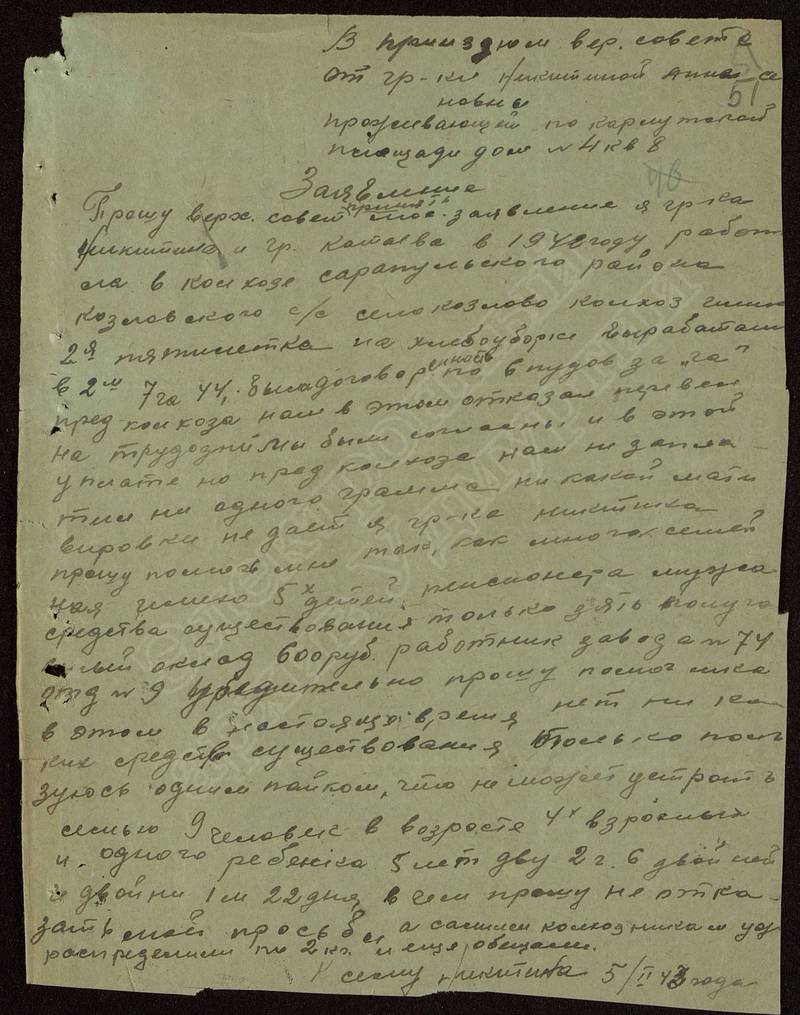 В прииздюм вер. совета
51
от гр-ки Никитиной Анны се
новны
проживающей по
площади дом №4 кв 8
46
Заявление
Прошу верх. совет принить мое заявление я гр-ка
Никитина и гр. Катаева в 1942 году работ
ла в колхозе сарапульского района
козловского с/с село козлово колхоз имени
2я пятилетка на хлебоуборке выработали
в 2м 7га 44, был договореность по 6 пудов за „га"
пред колхоза нам в этом отказал перевел
на трудодни мы были согласны и в этой
уплате но пред колхоза нам ни запла
тил ни одного грамма ни какой мати
вировки не дает я гр-ка Никитина
прошу помочь мне так, как много семей
ная имею 5х детей, пенсионера мужа
средства существования только зять получа
емый оклад 600 руб. работник завода №74
отд №9 Убедительно прошу помоч мне
в этом в настоящо время нет ни ка
ких средств существования только поль
зуюсь одним пайком, что не может устроить
семью 9 человек в возросте 4х взрослых
и одного ребенка 5 лет дву 2 г. 6 двойней
и двойни 1 м 22 дня, в чем прошу не отка
зать мой просьбы, а самим колхозникам уж
распределили по 2 кг. и еще обещали.
К сему Никитина 5/II 43 года